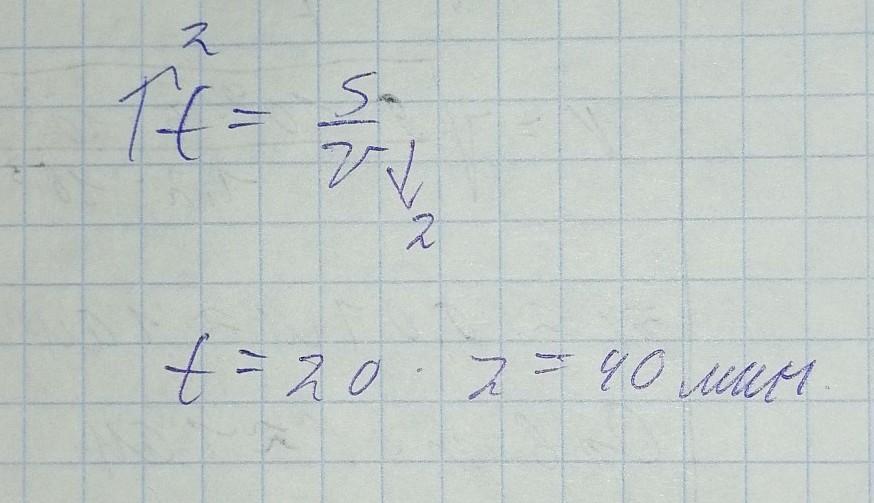 2
↑t = S/v↓
2
t = 20 · 2 = 40 мин.